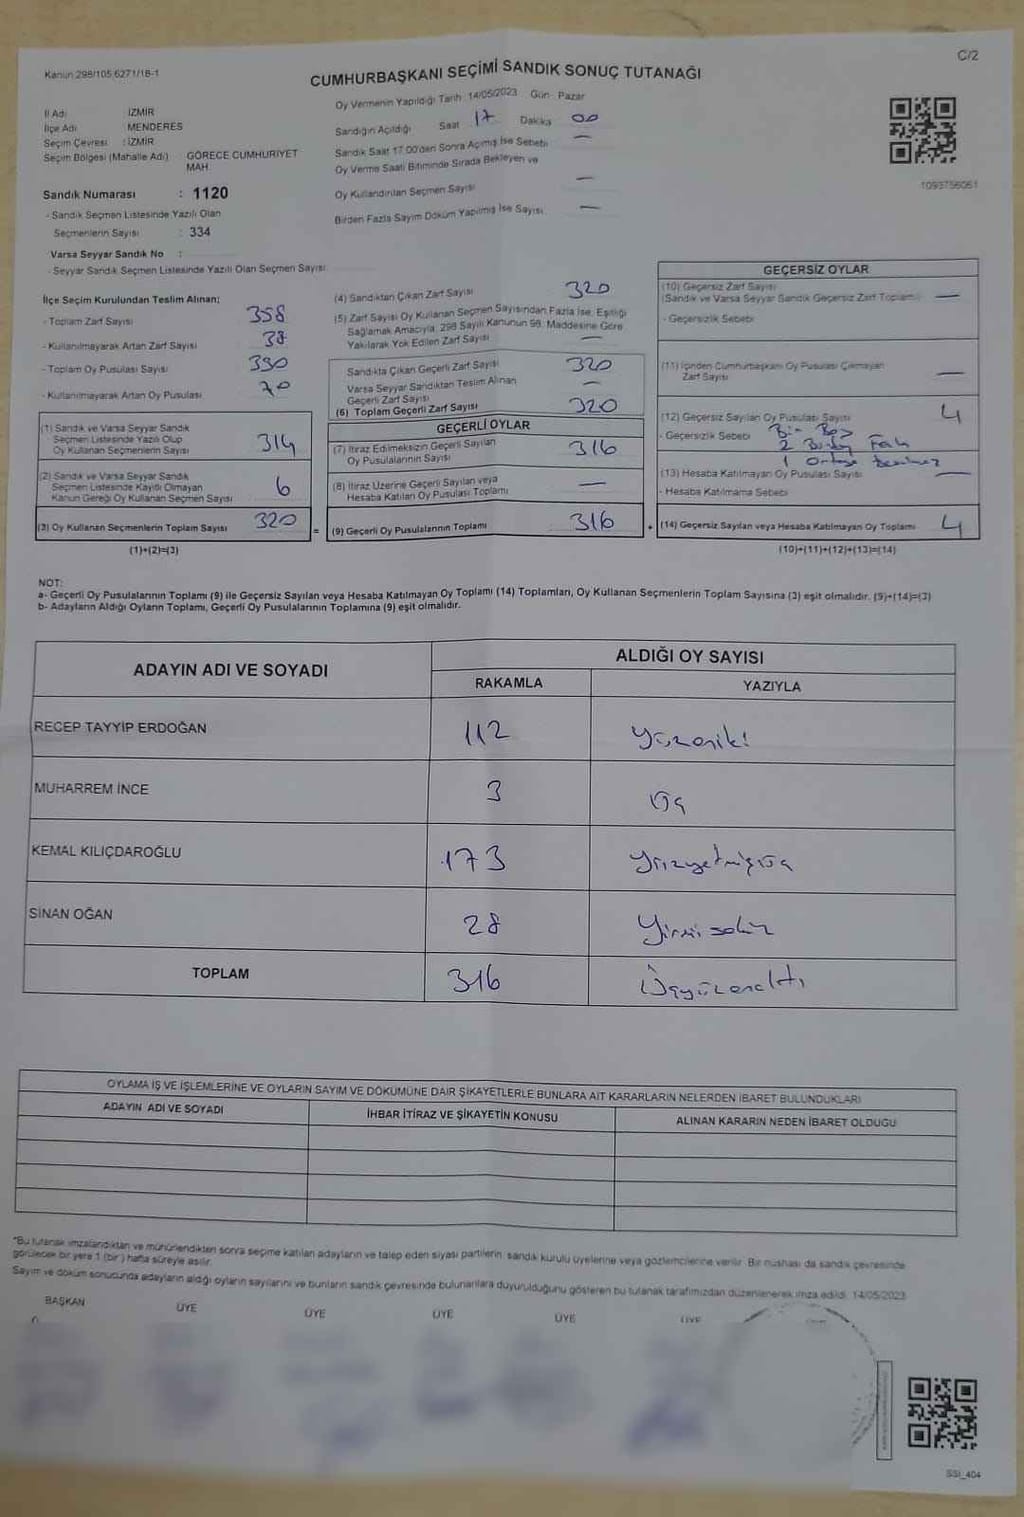 Kanun 298/105 6271/18-1
C/2
CUMHURBAŞKANI SEÇİMİ SANDIK SONUÇ TUTANAĞI
İl Adı : İZMİR
İlçe Adı : MENDERES
Seçim Çevresi : İZMİR
Seçim Bölgesi (Mahalle Adı) GÖRECE CUMHURİYET MAH.
Sandık Numarası : 1120
- Sandık Seçmen Listesinde Yazılı Olan
Seçmenlerin Sayısı : 334
Varsa Seyyar Sandık No :
- Seyyar Sandık Seçmen Listesinde Yazılı Olan Seçmen Sayısı
Oy Vermenin Yapıldığı Tarih : 14/05/2023 Gün : Pazar
Sandığın Açıldığı Saat 17 Dakika 00
Sandık Saat 17.00'den Sonra Açılmış İse Sebebi —
Oy Verme Saati Bitiminde Sırada Bekleyen ve
Oy Kullandırılan Seçmen Sayısı —
Birden Fazla Sayım Döküm Yapılmış İse Sayısı —
1093756061
İlçe Seçim Kurulundan Teslim Alınan;
- Toplam Zarf Sayısı 358
- Kullanılmayarak Artan Zarf Sayısı 38
- Toplam Oy Pusulası Sayısı 390
- Kullanılmayarak Artan Oy Pusulası 70
(1) Sandık ve Varsa Seyyar Sandık
Seçmen Listesinde Yazılı Olup
Oy Kullanan Seçmenlerin Sayısı 314
(2) Sandık ve Varsa Seyyar Sandık
Seçmen Listesinde Kayıtlı Olmayan
Kanun Gereği Oy Kullanan Seçmen Sayısı 6
(3) Oy Kullanan Seçmenlerin Toplam Sayısı 320
(1)+(2)=(3)
(4) Sandıktan Çıkan Zarf Sayısı 320
(5) Zarf Sayısı Oy Kullanan Seçmen Sayısından Fazla İse, Eşitliği
Sağlamak Amacıyla, 298 Sayılı Kanunun 98. Maddesine Göre
Yakılarak Yok Edilen Zarf Sayısı —
Sandıkta Çıkan Geçerli Zarf Sayısı 320
Varsa Seyyar Sandıktan Teslim Alınan
Geçerli Zarf Sayısı —
(6) Toplam Geçerli Zarf Sayısı 320
GEÇERLİ OYLAR
(7) İtiraz Edilmeksizin Geçerli Sayılan
Oy Pusulalarının Sayısı 316
(8) İtiraz Üzerine Geçerli Sayılan veya
Hesaba Katılan Oy Pusulası Toplamı —
= (9) Geçerli Oy Pusulalarının Toplamı 316
GEÇERSİZ OYLAR
(10) Geçersiz Zarf Sayısı
(Sandık ve Varsa Seyyar Sandık Geçersiz Zarf Toplamı) —
- Geçersizlik Sebebi
(11) İçinden Cumhurbaşkanı Oy Pusulası Çıkmayan
Zarf Sayısı —
(12) Geçersiz Sayılan Oy Pusulası Sayısı 4
- Geçersizlik Sebebi Bir Boş
2
1
(13) Hesaba Katılmayan Oy Pusulası Sayısı —
- Hesaba Katılmama Sebebi
+ (14) Geçersiz Sayılan veya Hesaba Katılmayan Oy Toplamı 4
(10)+(11)+(12)+(13)=(14)
NOT:
a- Geçerli Oy Pusulalarının Toplamı (9) ile Geçersiz Sayılan veya Hesaba Katılmayan Oy Toplamı (14) Toplamları, Oy Kullanan Seçmenlerin Toplam Sayısına (3) eşit olmalıdır. (9)+(14)=(3)
b- Adayların Aldığı Oyların Toplamı, Geçerli Oy Pusulalarının Toplamına (9) eşit olmalıdır.
ADAYIN ADI VE SOYADI
ALDIĞI OY SAYISI
RAKAMLA YAZIYLA
RECEP TAYYİP ERDOĞAN 112 Yüzoniki
MUHARREM İNCE 3 Üç
KEMAL KILIÇDAROĞLU 173 Yüzyetmişüç
SİNAN OĞAN 28 Yirmi sekiz
TOPLAM 316 Üçyüzonaltı
OYLAMA İŞ VE İŞLEMLERİNE VE OYLARIN SAYIM VE DÖKÜMÜNE DAİR ŞİKAYETLERLE BUNLARA AİT KARARLARIN NELERDEN İBARET BULUNDUKLARI
ADAYIN ADI VE SOYADI İHBAR İTİRAZ VE ŞİKAYETİN KONUSU ALINAN KARARIN NEDEN İBARET OLDUĞU
*Bu tutanak imzalandıktan ve mühürlendikten sonra seçime katılan adayların ve talep eden siyasi partilerin, sandık kurulu üyelerine veya gözlemcilerine verilir. Bir nüshası da sandık çevresinde
görülecek bir yere 1 (bir) hafta süreyle asılır.
Sayım ve döküm sonucunda adayların aldığı oyların sayılarını ve bunların sandık çevresinde bulunanlara duyurulduğunu gösteren bu tutanak tarafımızdan düzenlenerek imza edildi. 14/05/2023
BAŞKAN ÜYE ÜYE ÜYE ÜYE ÜYE
SSI_404